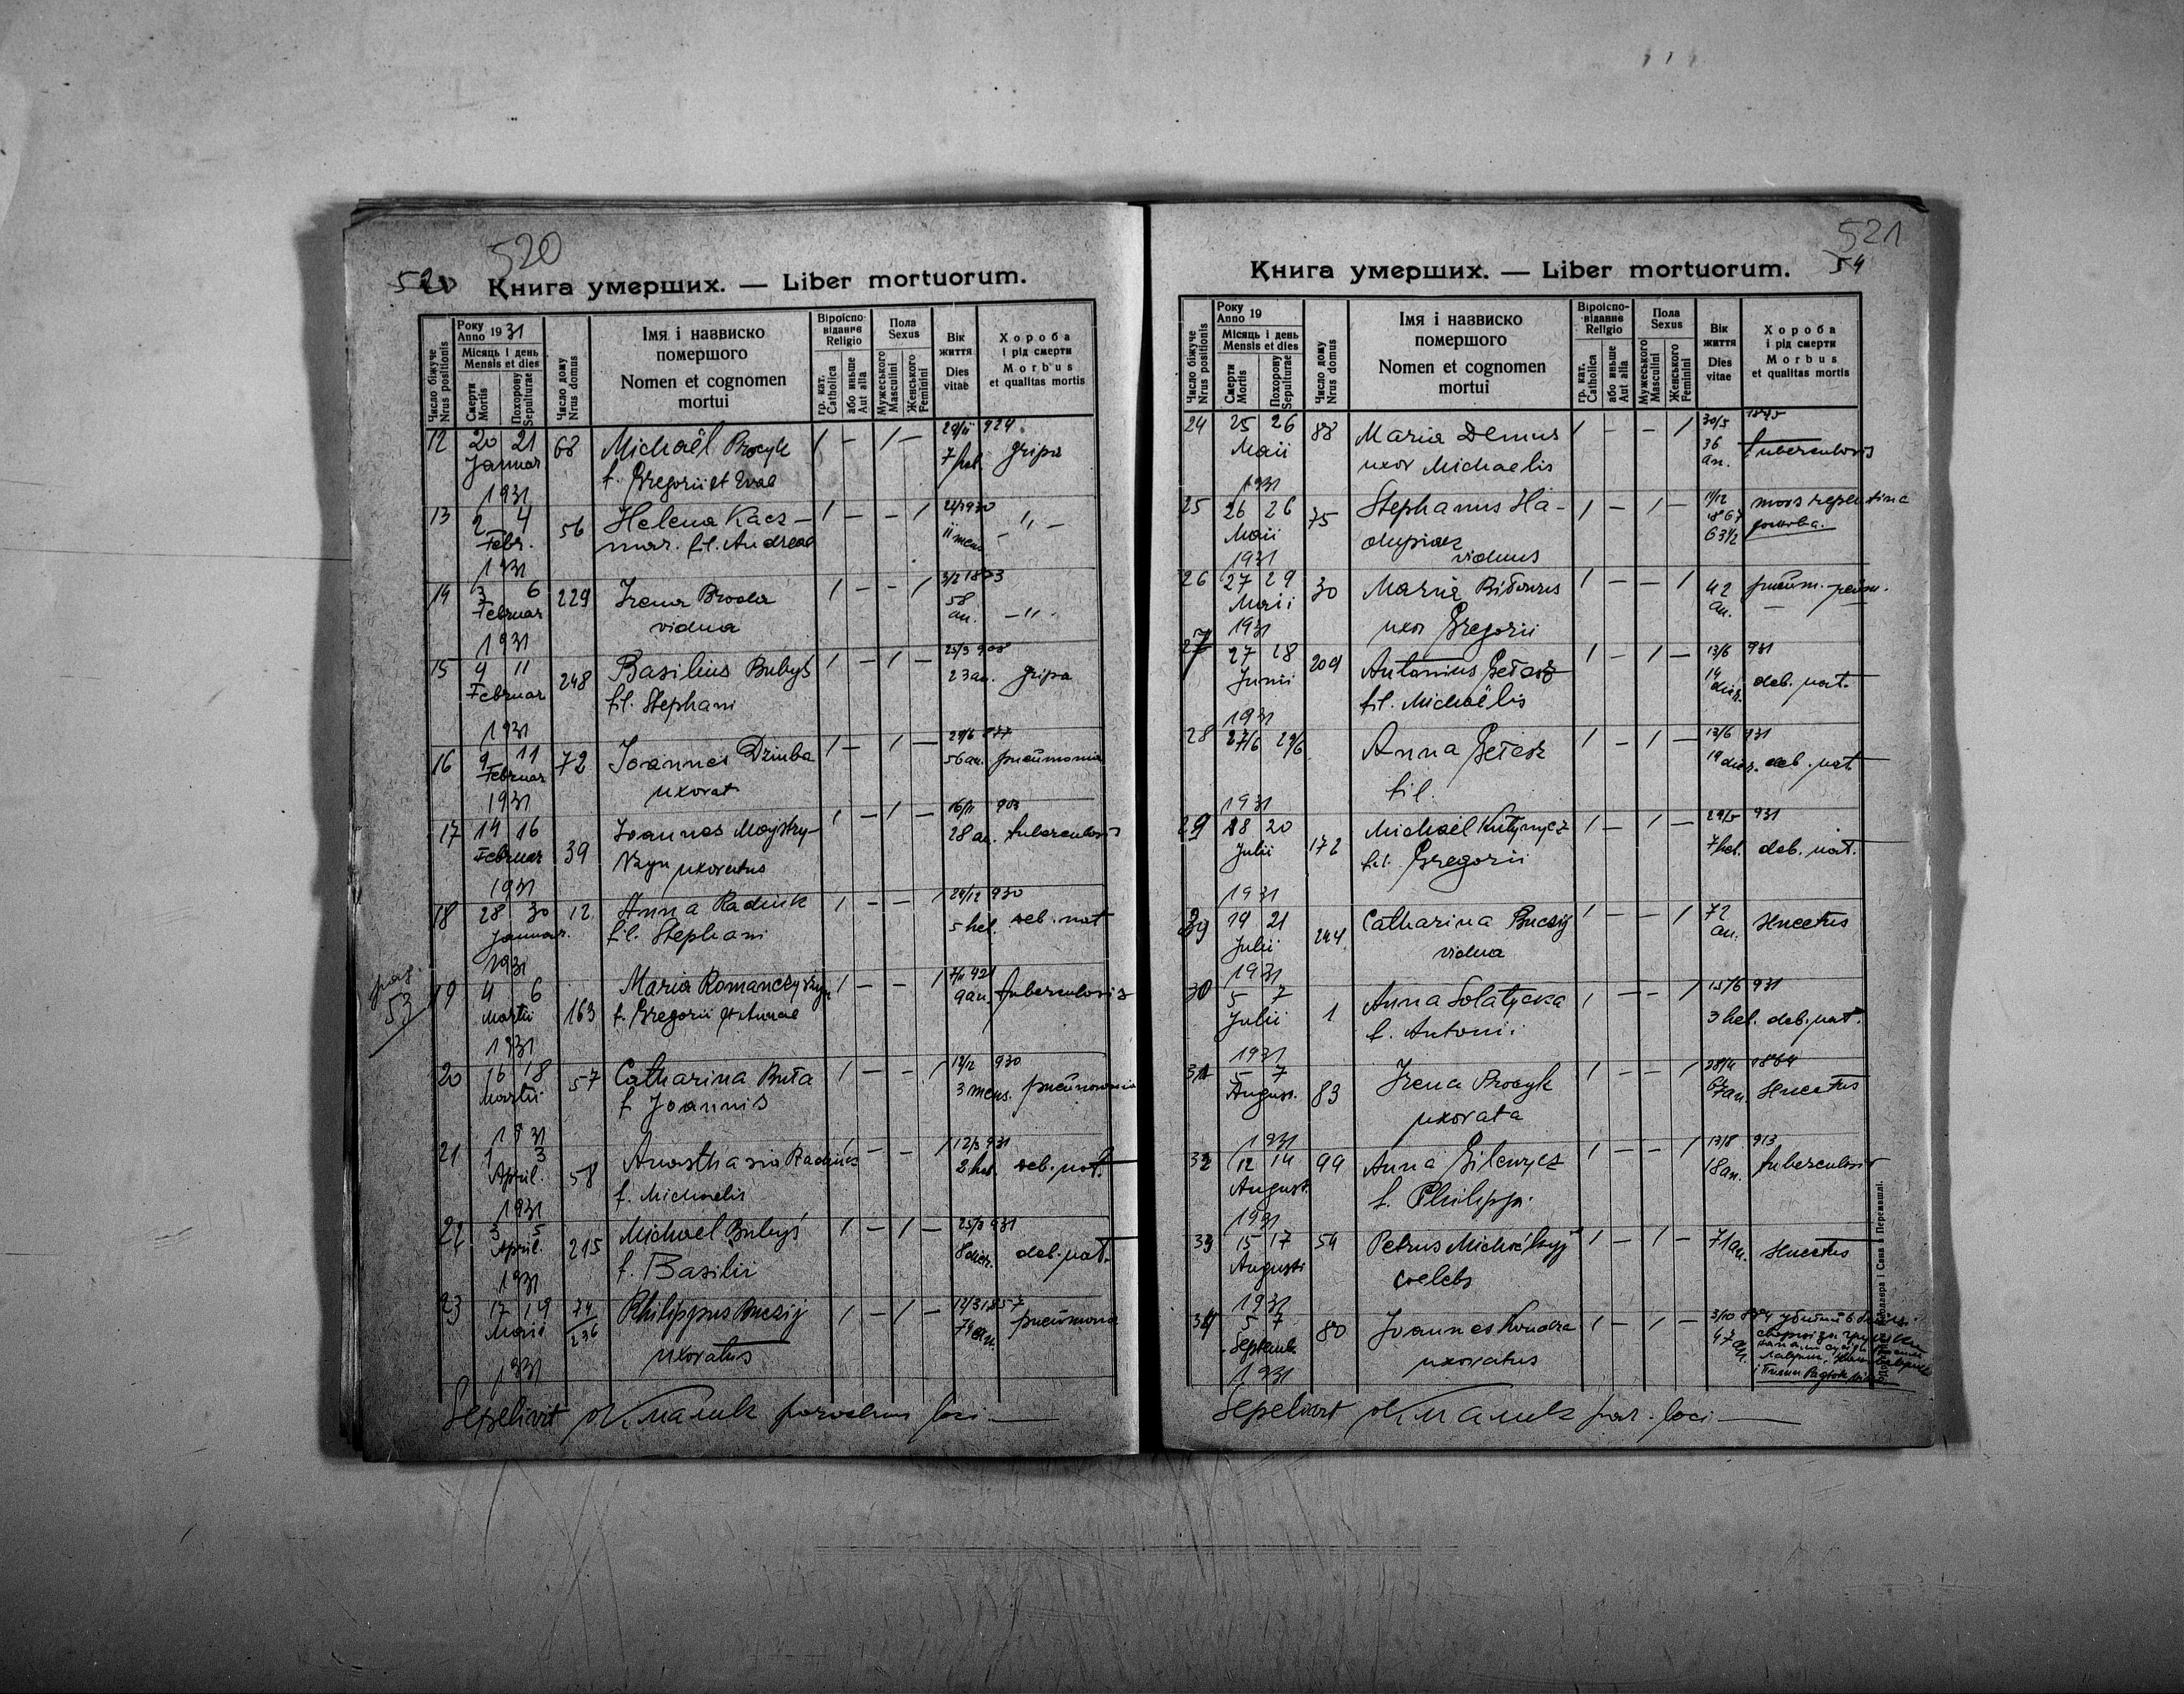 520
Книга умерших. — Liber mortuorum.
Число біжуче
Nrus positionis
Року
Anno 1931
Місяць і день
Mensis et dies
Смерти
Mortis
Похорону
Sepulturae
Число дому
Nrus domus
Імя і назвиско
помершого
Nomen et cognomen
mortui
Віроіспо-
відание
Religio
гр. кат.
Catholica
або иньше
Aut alia
Пола
Sexus
Мужеського
Masculini
Женського
Feminini
Вік
життя
Dies
vitae
Хороба
і рід смерти
Morbus
et qualitas mortis
12 20 21 68 Michaël Procyk / — / —
Januar f. Gregorii et Evae 7 hel. gripa
1931
13 2 4 56 Helena Kacz- / — — / " —
Febr. mar. fil. Andreae 11 mens
1931
14 3 6 229 Irena Broda / — — / 3/2 1873
Februar vidua 58 an. — " —
1931
15 9 11 248 Basilius Bubys / — / — 25/3 908
Februar fil. Stephani 23 an. gripa
1931
16 9 11 72 Joannes Dziuba / — / — 24/6
Februar uxorat 56 an. pneumonia
1931
17 14 16 39 Joannes Majstry- / — / — 16/11 903
Februar uxoratus 28 an. tuberculosis
1931
18 28 30 12 Anna Radiuk / — — / 24/12 930
Januar. fil. Stephani 5 hel. deb. nat
1931
pag.
53
19 4 6 163 Maria Romanczy / — — / 7/11 921
Martii f. Gregorii et Annae 9 an. tuberculosis
1931
20 16 18 57 Catharina Buta / — — / 14/12 930
Martii f Joannis 3 mens. pneumonia
1931
21 1 3 58 Anasthasia Radiuk — — / 12/3 931
April. f. Michaelis 2 hel. deb. nat.
1931
22 3 5 215 Michael Bubys / — / — 25/3 931
April. f. Basilii 8 dier. deb. nat.
1931
23 17 19 74/236 Philippus Buczij / — / — 14/3 1857
Maii uxoratus 74 an. pneumonia
1931
Sepelivit parochus loci —
521
54
Книга умерших. — Liber mortuorum.
Число біжуче
Nrus positionis
Року
Anno 19
Місяць і день
Mensis et dies
Смерти
Mortis
Похорону
Sepulturae
Число дому
Nrus domus
Імя і назвиско
помершого
Nomen et cognomen
mortui
Віроіспо-
відание
Religio
гр. кат.
Catholica
або иньше
Aut alia
Пола
Sexus
Мужеського
Masculini
Женського
Feminini
Вік
життя
Dies
vitae
Хороба
і рід смерти
Morbus
et qualitas mortis
24 25 26 88 Maria Demus / — — / 30/5 1895
Maii uxor Michaelis 36 an. tuberculosis
1931
25 26 26 75 Stephanus Ha- / — / — 14/12 1867 mors repentina
Maii viduus 63 1/2
1931
26 27 29 30 Maria / — — / 42 an.
Maii uxor Gregorii
1931
27 27 28 204 Antonius Getesz / — / — 13/6 931
Junii fil. Michaëlis 14 dier. deb. nat.
1931
28 27/6 29/6 Anna Getesz / — / — 13/6 931
fil. 14 dier. deb. nat
1931
29 18 20 172 Michaël Kutynycz / — / — 29/5 931
Julii fil. Gregorii 7 hel. deb. nat.
1931
19 21 244 Catharina Buczij / — — / 72 an. Snectus
Julii vidua
1931
30 5 7 1 Anna Solatycka / — — / 15/6 931
Julii f. Antonii 3 hel. deb. nat.
1931
31 5 7 83 Irena Procyk / — — / 28/4 1864
August. uxorata 67 an. Snectus
1931
32 12 14 99 Anna Gilewycz / — — / 13/8 913
August. f. Philippi 18 an. tuberculosis
1931
33 15 17 54 Petrus Michalskyj / — / — 71 an. Snectus
Augusti coelebs
1931
34 5 7 80 Joannes Kondra / — / — 3/10 884 убитий в
Septemb. uxoratus 47 an.
1931
Sepelivit par. loci —